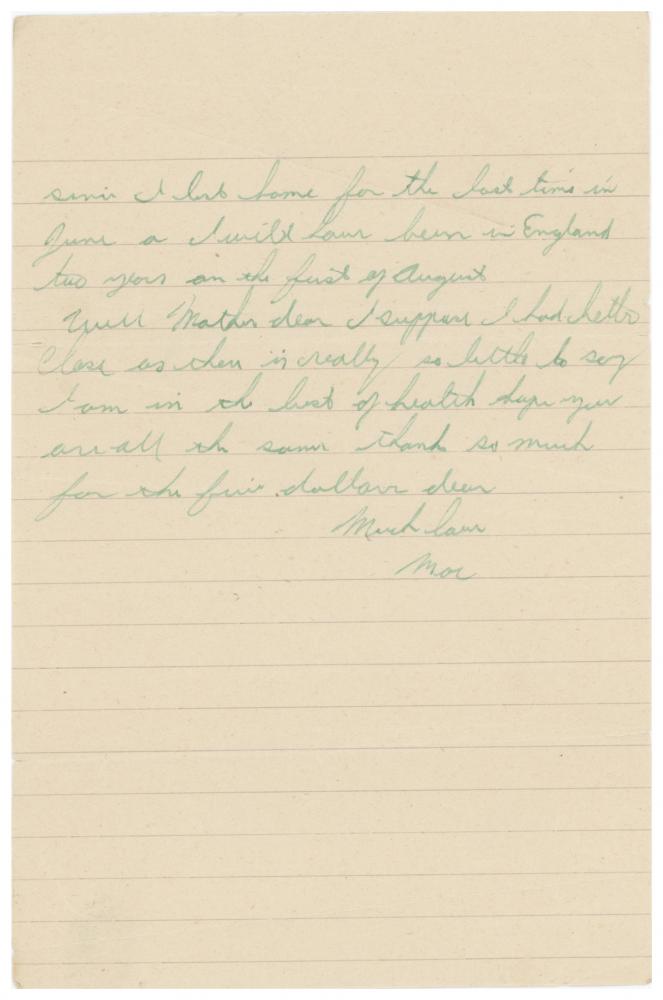 since I left home for the last time in
June & I will have been in England
two years on the first of August
Well Mother dear I suppose I had better
Close as there is really so little to say
I am in the best of health hope you
are all the same thanks so much
for the five dollars dear
Much love
Mac